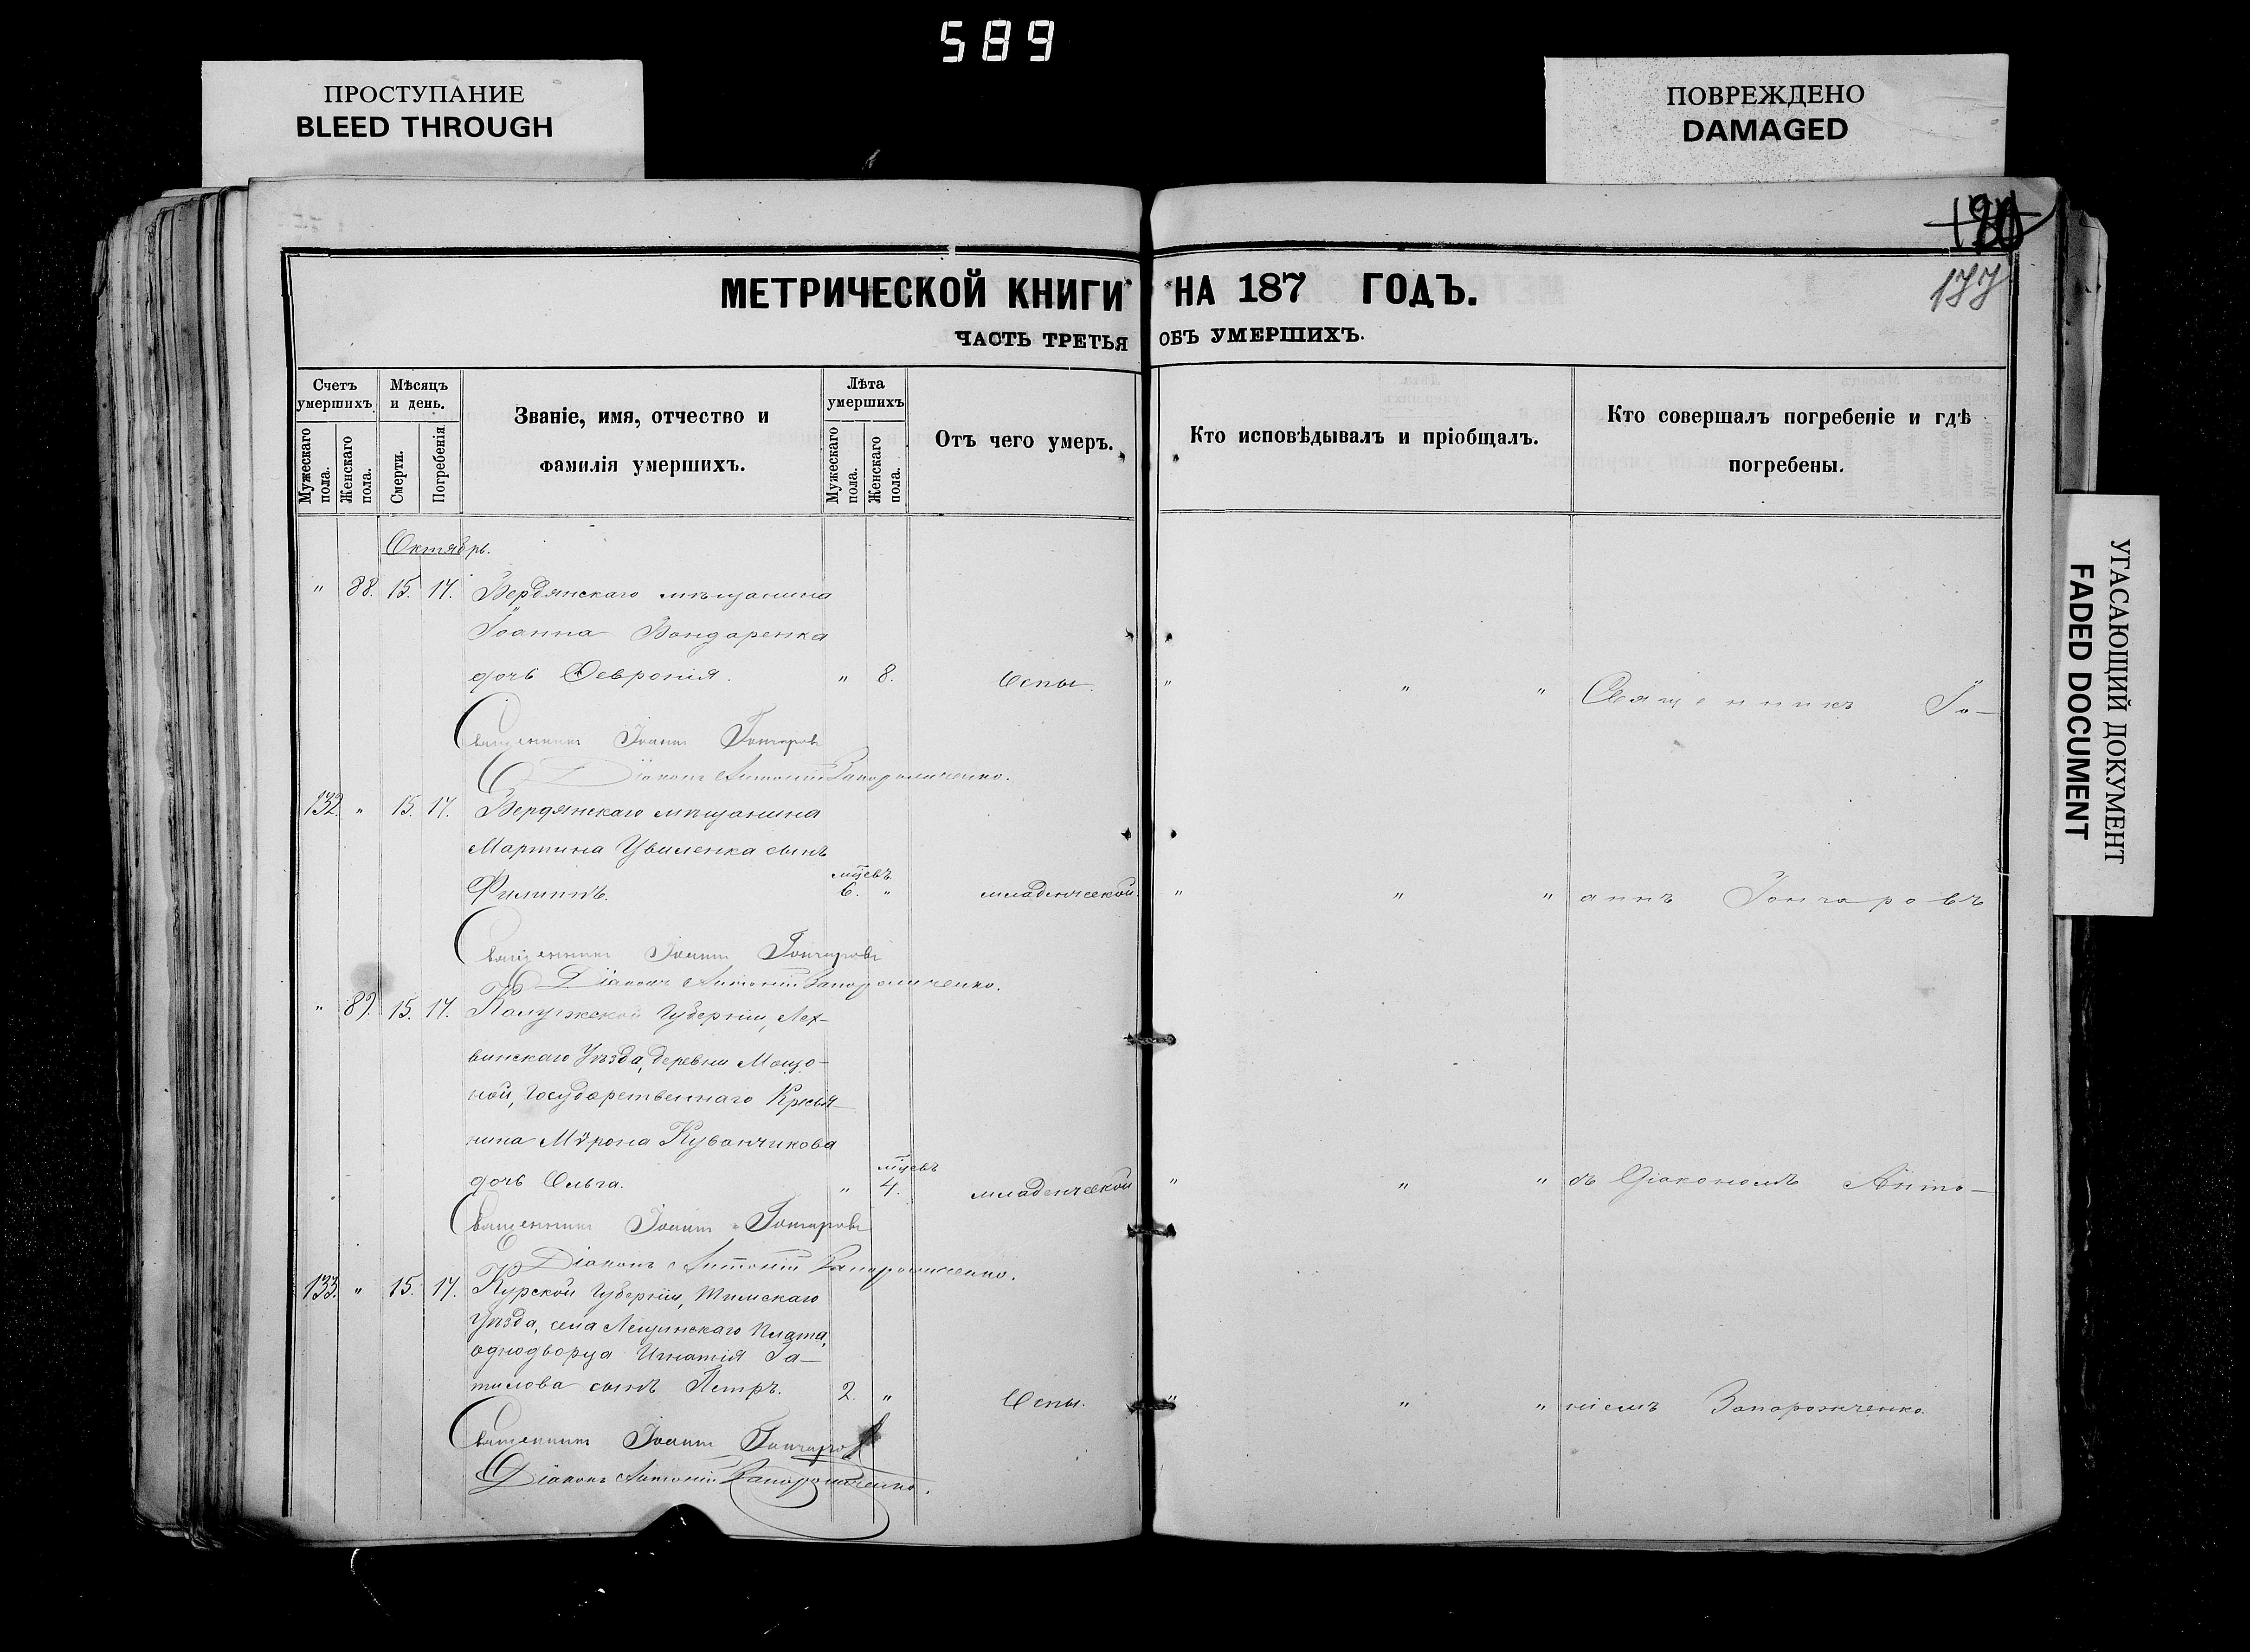 589
ПРОСТУПАНИЕ
BLEED THROUGH
ПОВРЕЖДЕНО
DAMAGED
УГАСАЮЩИЙ ДОКУМЕНТ
FADED DOCUMENT
177
МЕТРИЧЕСКОЙ КНИГИ НА 187 ГОДЪ.
ЧАСТЬ ТРЕТЬЯ ОБЪ УМЕРШИХЪ.
Счетъ умершихъ.
Мужескаго пола.
Женскаго пола.
Мѣсяцъ и день.
Смерти.
Погребенія.
Званіе, имя, отчество и
фамилія умершихъ.
Лѣта умершихъ
Мужескаго пола.
Женскаго пола.
Отъ чего умеръ.
Кто исповѣдывалъ и пріобщалъ.
Кто совершалъ погребеніе и гдѣ
погребены.
Октябрь.
" 88. 15. 17. Бердянскаго мѣщанина
Іоанна Бондаренка
дочь Февронія. " 8. Оспы. " " " Священникъ Іо-
Священникъ Іоаннъ Гончаровъ
Діаконъ Антоній Запорожченко.
132. " 15. 17. Бердянскаго мѣщанина
Мартина Цвиленка сынъ
мцевъ
Филиппъ. 6. " младенческой. " " " аннъ Гончаровъ
Священникъ Іоаннъ Гончаровъ
Діаконъ Антоній Запорожченко.
" 89. 15. 17. Калужской Губерніи, Лих-
винскаго Уѣзда, деревни Мощо-
ной, Государственнаго Крестья-
нина Мѵрона Куванчикова
мцевъ
дочь Ольга. " 4. младенческой " " " съ Діакономъ Анто-
Священникъ Іоаннъ Гончаровъ
Діаконъ Антоній Запорожченко.
133. " 15. 17. Курской Губерніи, Тимскаго
Уѣзда, села Лещинскаго Плата,
однодворца Игнатія Га-
тилова сынъ Петръ. 2. " Оспы. " " " ніемъ Запорожченко.
Священникъ Іоаннъ Гончаровъ
Діаконъ Антоній Запорожченко.